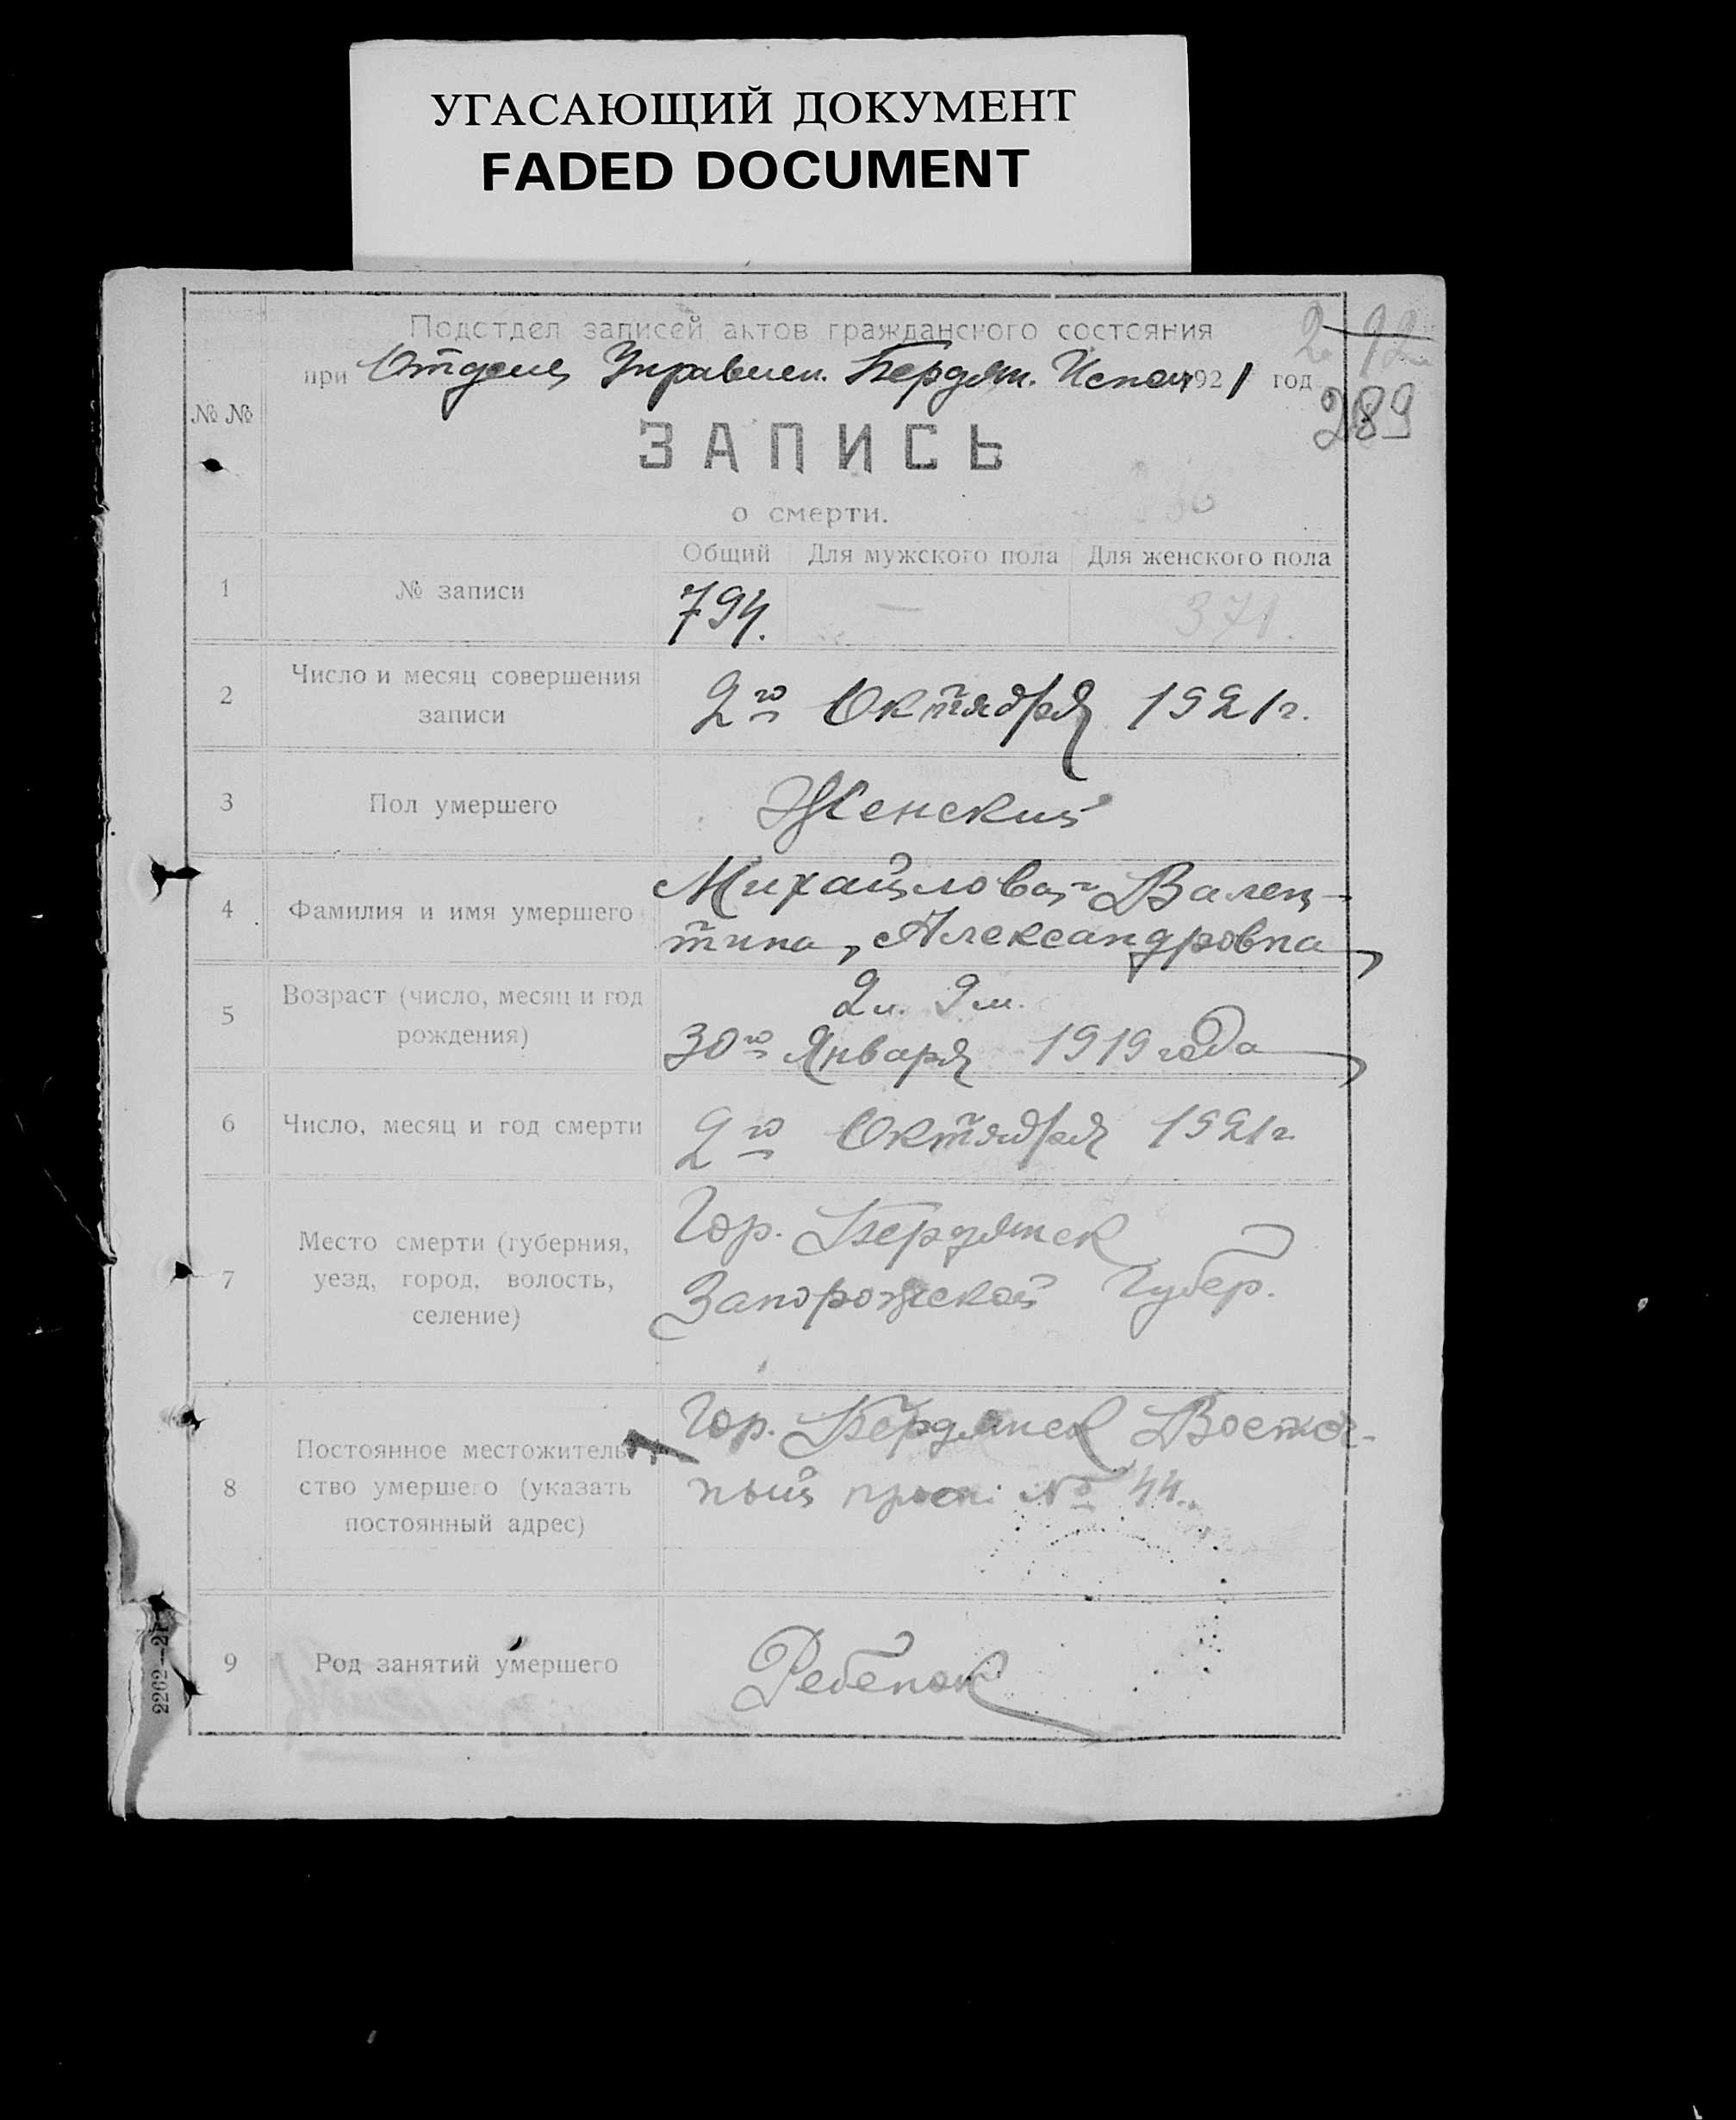 УГАСАЮЩИЙ ДОКУМЕНТ
FADED DOCUMENT
Подотдел записей актов гражданского состояния
при Отделе Управлен. Бердян. Испол 1921 год
289
№ №
ЗАПИСЬ
о смерти.
Общий Для мужского пола Для женского пола
1 № записи 794. — 371.
2 Число и месяц совершения
записи
2го Октября 1921 г.
3 Пол умершего Женский
4 Фамилия и имя умершего
Михайлова Вален-
тина, Александровна
5 Возраст (число, месяц и год
рождения)
2 л. 9 м.
30го Января 1919 года
6 Число, месяц и год смерти 2го Октября 1921 г.
7 Место смерти (губерния,
уезд, город, волость,
селение)
Гор. Бердянск
Запорожской Губер.
8 Постоянное местожитель-
ство умершего (указать
постоянный адрес)
Гор. Бердянск Восточ-
ный просп. № 44.
9 Род занятий умершего Ребенок